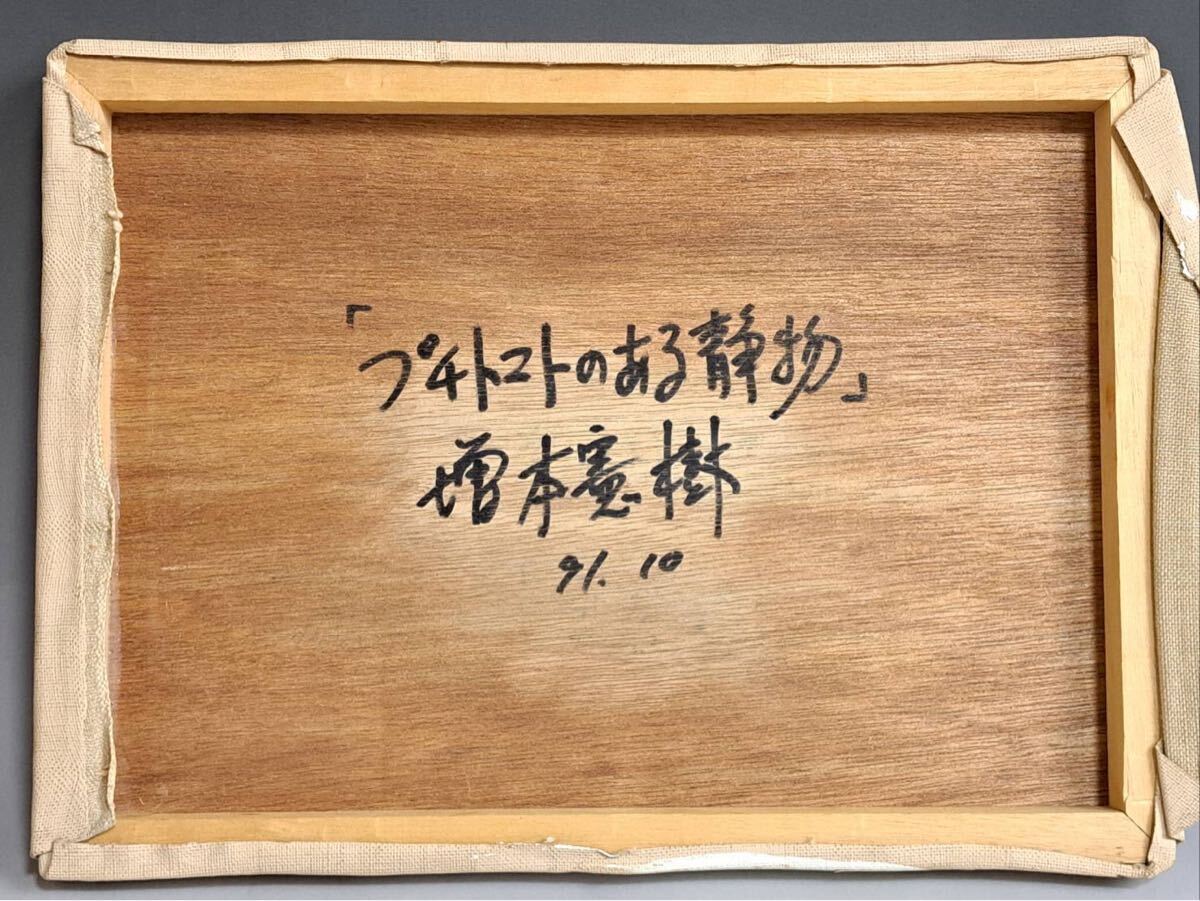 「プチトマトのある静物」
増本憲樹
91.10